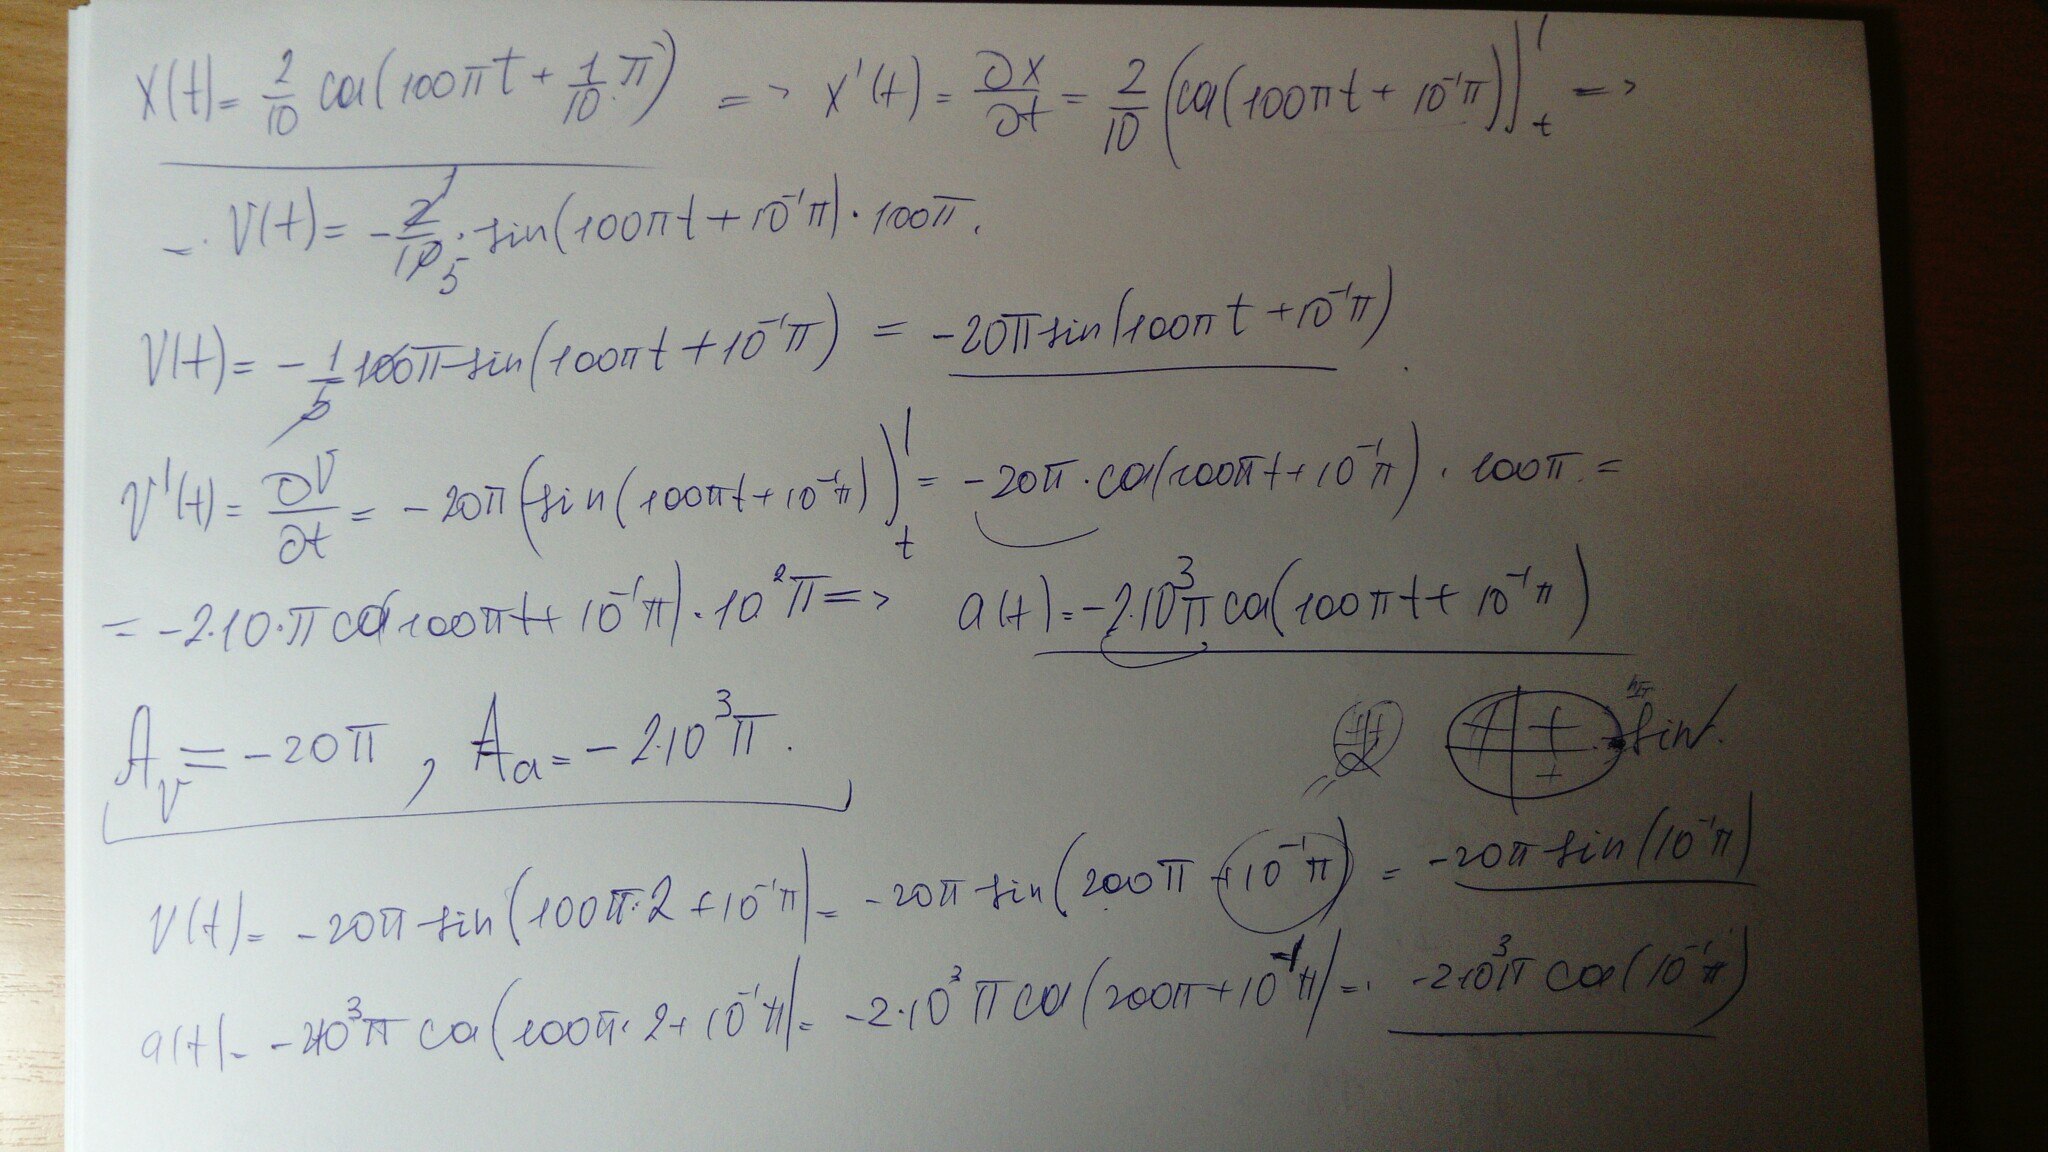 x(t) = 2/10 cos(100πt + 1/10 π) => x'(t) = ∂x/∂t = 2/10 (cos(100πt + 10⁻¹π))'ₜ =>
V(t) = -2/10 5 · sin(100πt + 10⁻¹π) · 100π.
V(t) = -1/5 100π sin(100πt + 10⁻¹π) = -20π sin(100πt + 10⁻¹π)
V'(t) = ∂V/∂t = -20π(sin(100πt + 10⁻¹π))'ₜ = -20π · cos(100πt + 10⁻¹π) · 100π =
= -2·10·π cos(100πt + 10⁻¹π) · 10²π => a(t) = -2·10³π cos(100πt + 10⁻¹π)
Aᵥ = -20π, Aₐ = -2·10³π.
sin
V(t) = -20π sin(100π·2 + 10⁻¹π) = -20π sin(200π + 10⁻¹π) = -20π sin(10⁻¹π)
a(t) = -2·10³π cos(100π·2 + 10⁻¹π) = -2·10³π cos(200π + 10⁻¹π) = -2·10³π cos(10⁻¹π)